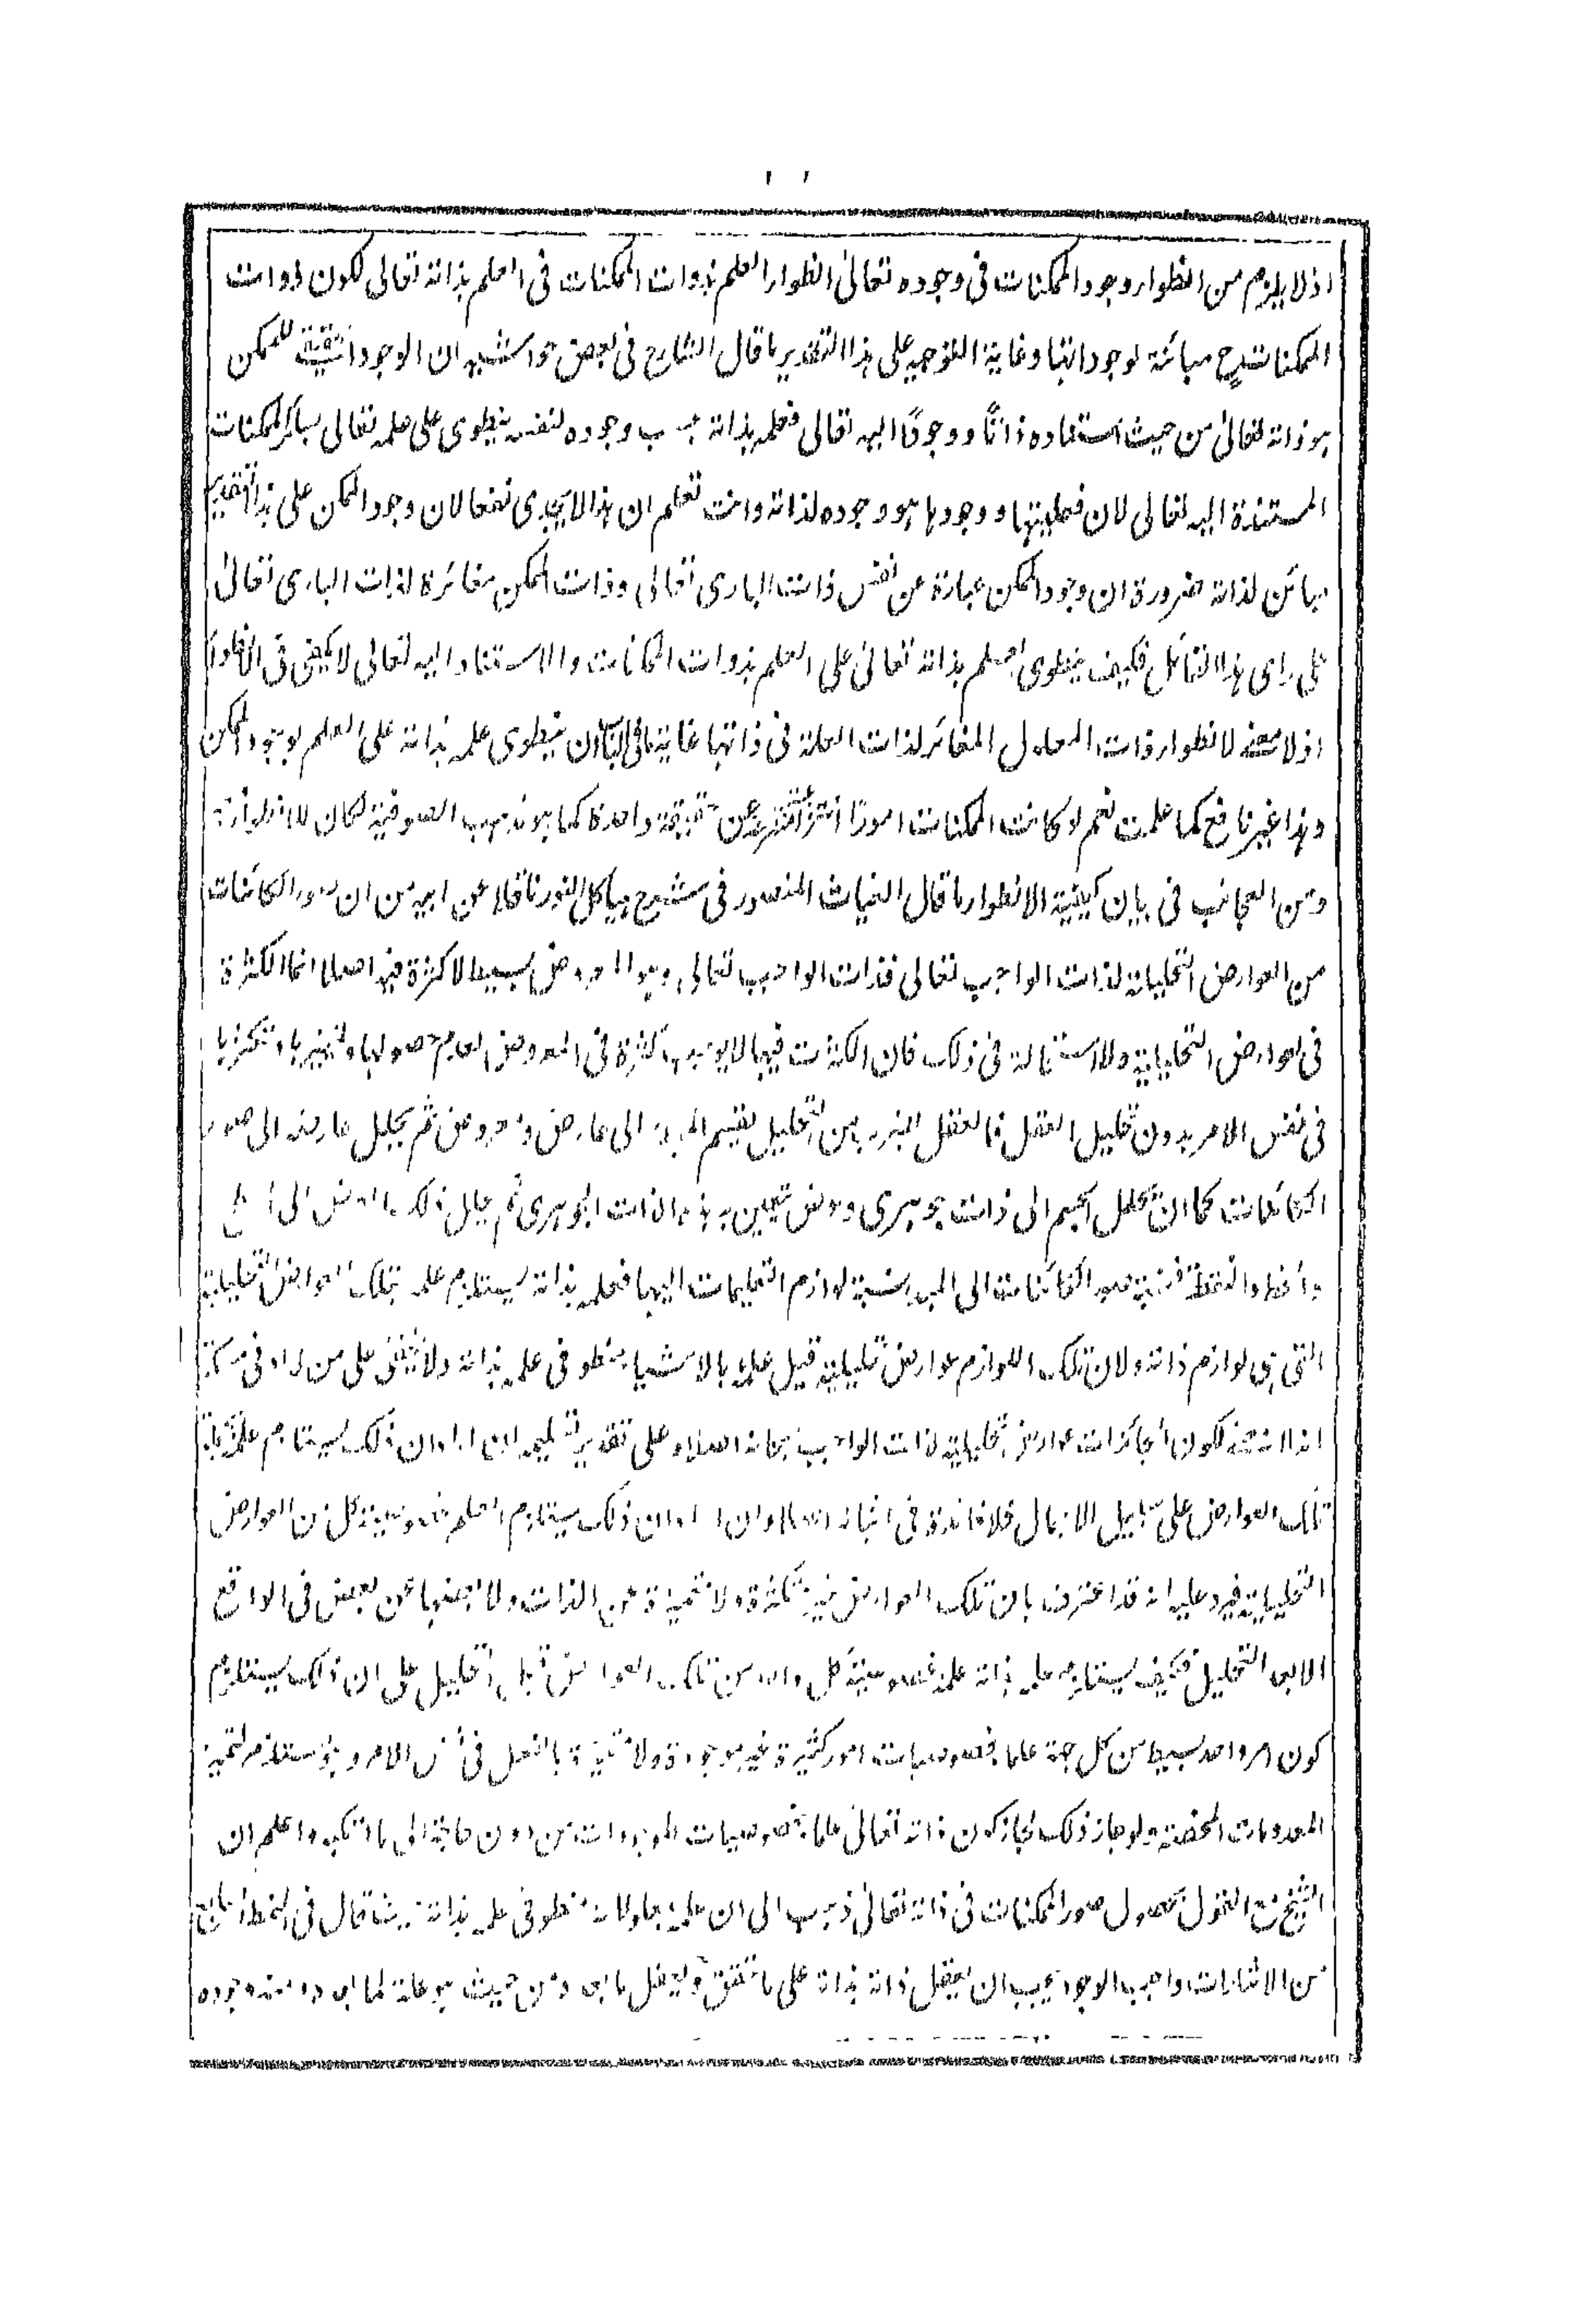 اذ لا يلزم من انطواء وجود الممكنات فى وجوده تعالى انطواء العلم بذوات الممكنات فى العلم بذاته تعالى لكون ذوات
الممكنات ح مبائنة لوجوداتها وغاية التوجيه على هذا التقدير ما قال الشارح فى بعض حواشيه ان الوجود الحقيقة للممكن
هو ذاته تعالى من حيث استناده ذاتًا ووجودًا اليه تعالى فعلمه بذاته بحسب وجوده لنفسه ينطوى على علمه تعالى بسائر الممكنات
المستندة اليه تعالى لان فعليتها ووجودها هو وجوده لذاته وانت تعلم ان هذا لا يجدى نفعا لان وجود الممكن على هذا التقدير
مبائن لذاته ضرورة ان وجود الممكن عبارة عن نفس ذات البارى تعالى وذات الممكن مغائرة لذات البارى تعالى
على راى هذا القائل فكيف ينطوى العلم بذاته تعالى على العلم بذوات الممكنات والاستناد اليه تعالى لا يكفى فى الانطواء
اذ لا معنى لانطواء ذات المعلول المغائر لذات العلة فى ذاتها غاية ما فى الباب ان ينطوى علمه بذاته على العلم بوجود الممكن
وهذا غير نافع كما علمت نعم لو كانت الممكنات امورًا انتزاعية منتزعة عن حقيقة واحدة كما هو مذهب الصوفية لكان للانطواء
ومن العجائب فى بيان كيفية الانطواء ما قال الغياث المنصور فى شرح هياكل النور ناقلا عن ابيه من ان صور الكائنات
من العوارض التحليلية لذات الواجب تعالى فذات الواجب تعالى وهو المعروض بسيط لا كثرة فيه اصلا انما الكثرة
فى العوارض التحليلية ولا استحالة فى ذلك فان الكثرة فيها لا يوجب كثرة فى المعروض لعدم حصولها وتميزها وتكثرها
فى نفس الامر بدون تحليل العقل فالعقل بضرب من التحليل يقسم الى عارض ومعروض ثم يحلل عارضه الى صور
الكائنات كما ان تحلل الجسم الى ذات جوهرى وعرض تعين به هذا الذات الجوهرى ثم يحلل ذلك العرض الى
والخط والنقطة فنسبة صور الكائنات الى المبدء نسبة لوازم التعليمات اليها فعلمه بذاته يستلزم علمه بتلك العوارض التحليلية
التى هى لوازم ذاته ولان تلك اللوازم عوارض تحليلية قيل علمه بالاشياء منطو فى علمه بذاته ولا يخفى على من له ادنى مسكة
انه لا معنى لكون الجائزات عوارض تحليلية لذات الواجب سبحانه اصلا وعلى تقدير تسليمه ان اراد ان ذلك يستلزم علمه
تلك العوارض على سبيل الاجمال فلا فائدة فى اثباته اصلا وان اراد ان ذلك يستلزم العلم بخصوصية كل من العوارض
التحليلية فيرد عليه انه قد اعترف بان تلك العوارض غير متكثرة ولا متميزة عن الذات ولا بعضها عن بعض فى الواقع
الا بعد التحليل فكيف يستلزم علمه بذاته علمه بخصوصية كل واحد من تلك العوارض قبل التحليل على ان ذلك يستلزم
كون امر واحد بسيط من كل جهة علما بخصوصيات امور كثيرة غير موجودة ولا متميزة بالفعل فى نفس الامر وهو مستلزم لتميز
المعدومات المحضة ولو جاز ذلك لجاز كون ذاته تعالى علما بخصوصيات الموجودات من دون حاجة الى ما ارتكبه واعلم ان
الشيخ مع القول بحصول صور الممكنات فى ذاته تعالى ذهب الى ان علمه بمعلولاته منطو فى علمه بذاته حيث قال فى النمط السابع
من الاشارات واجب الوجود يجب ان يعقل ذاته بذاته على ما تحقق ويعقل ما بعده من حيث هو علة لما بعده ومنه وجوده